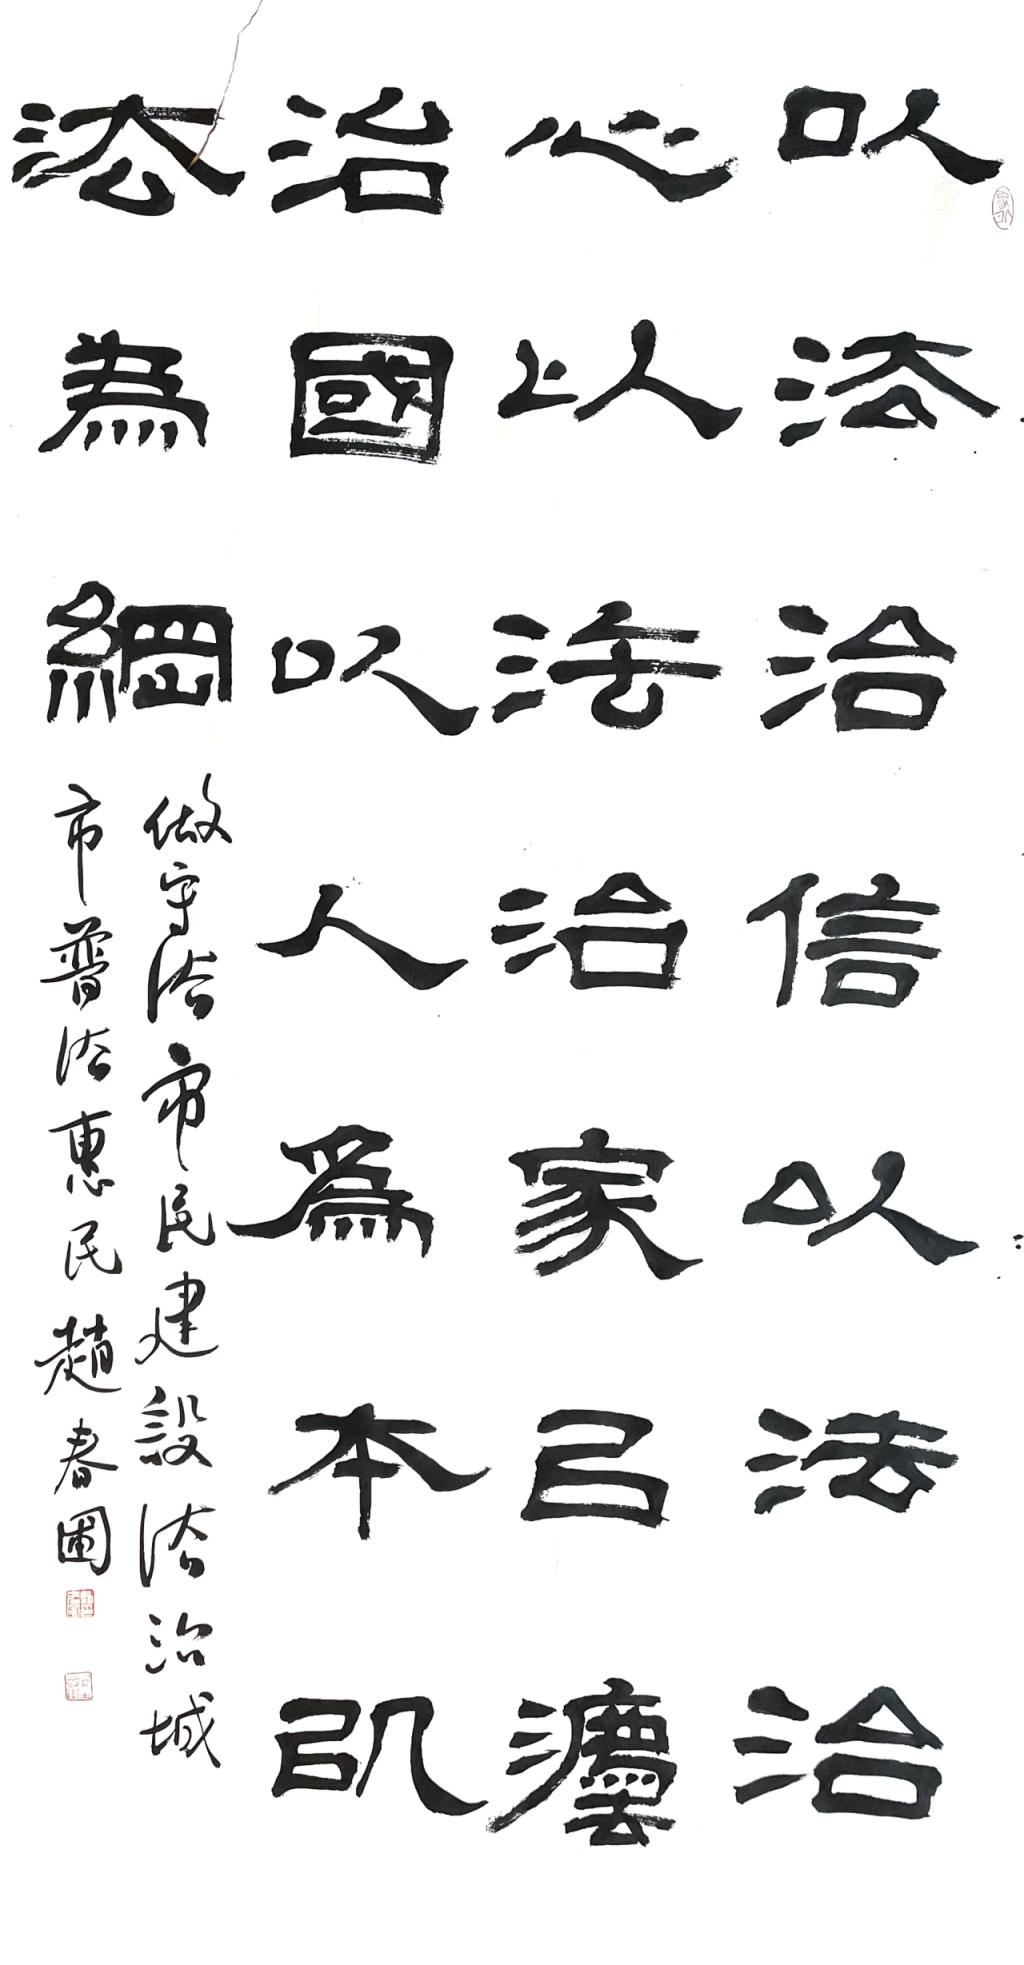 以法治信以法治
心以法治家㠯灋
治國以人為本以
法為綱
做守法市民建設法治城
市普法惠民趙春圃